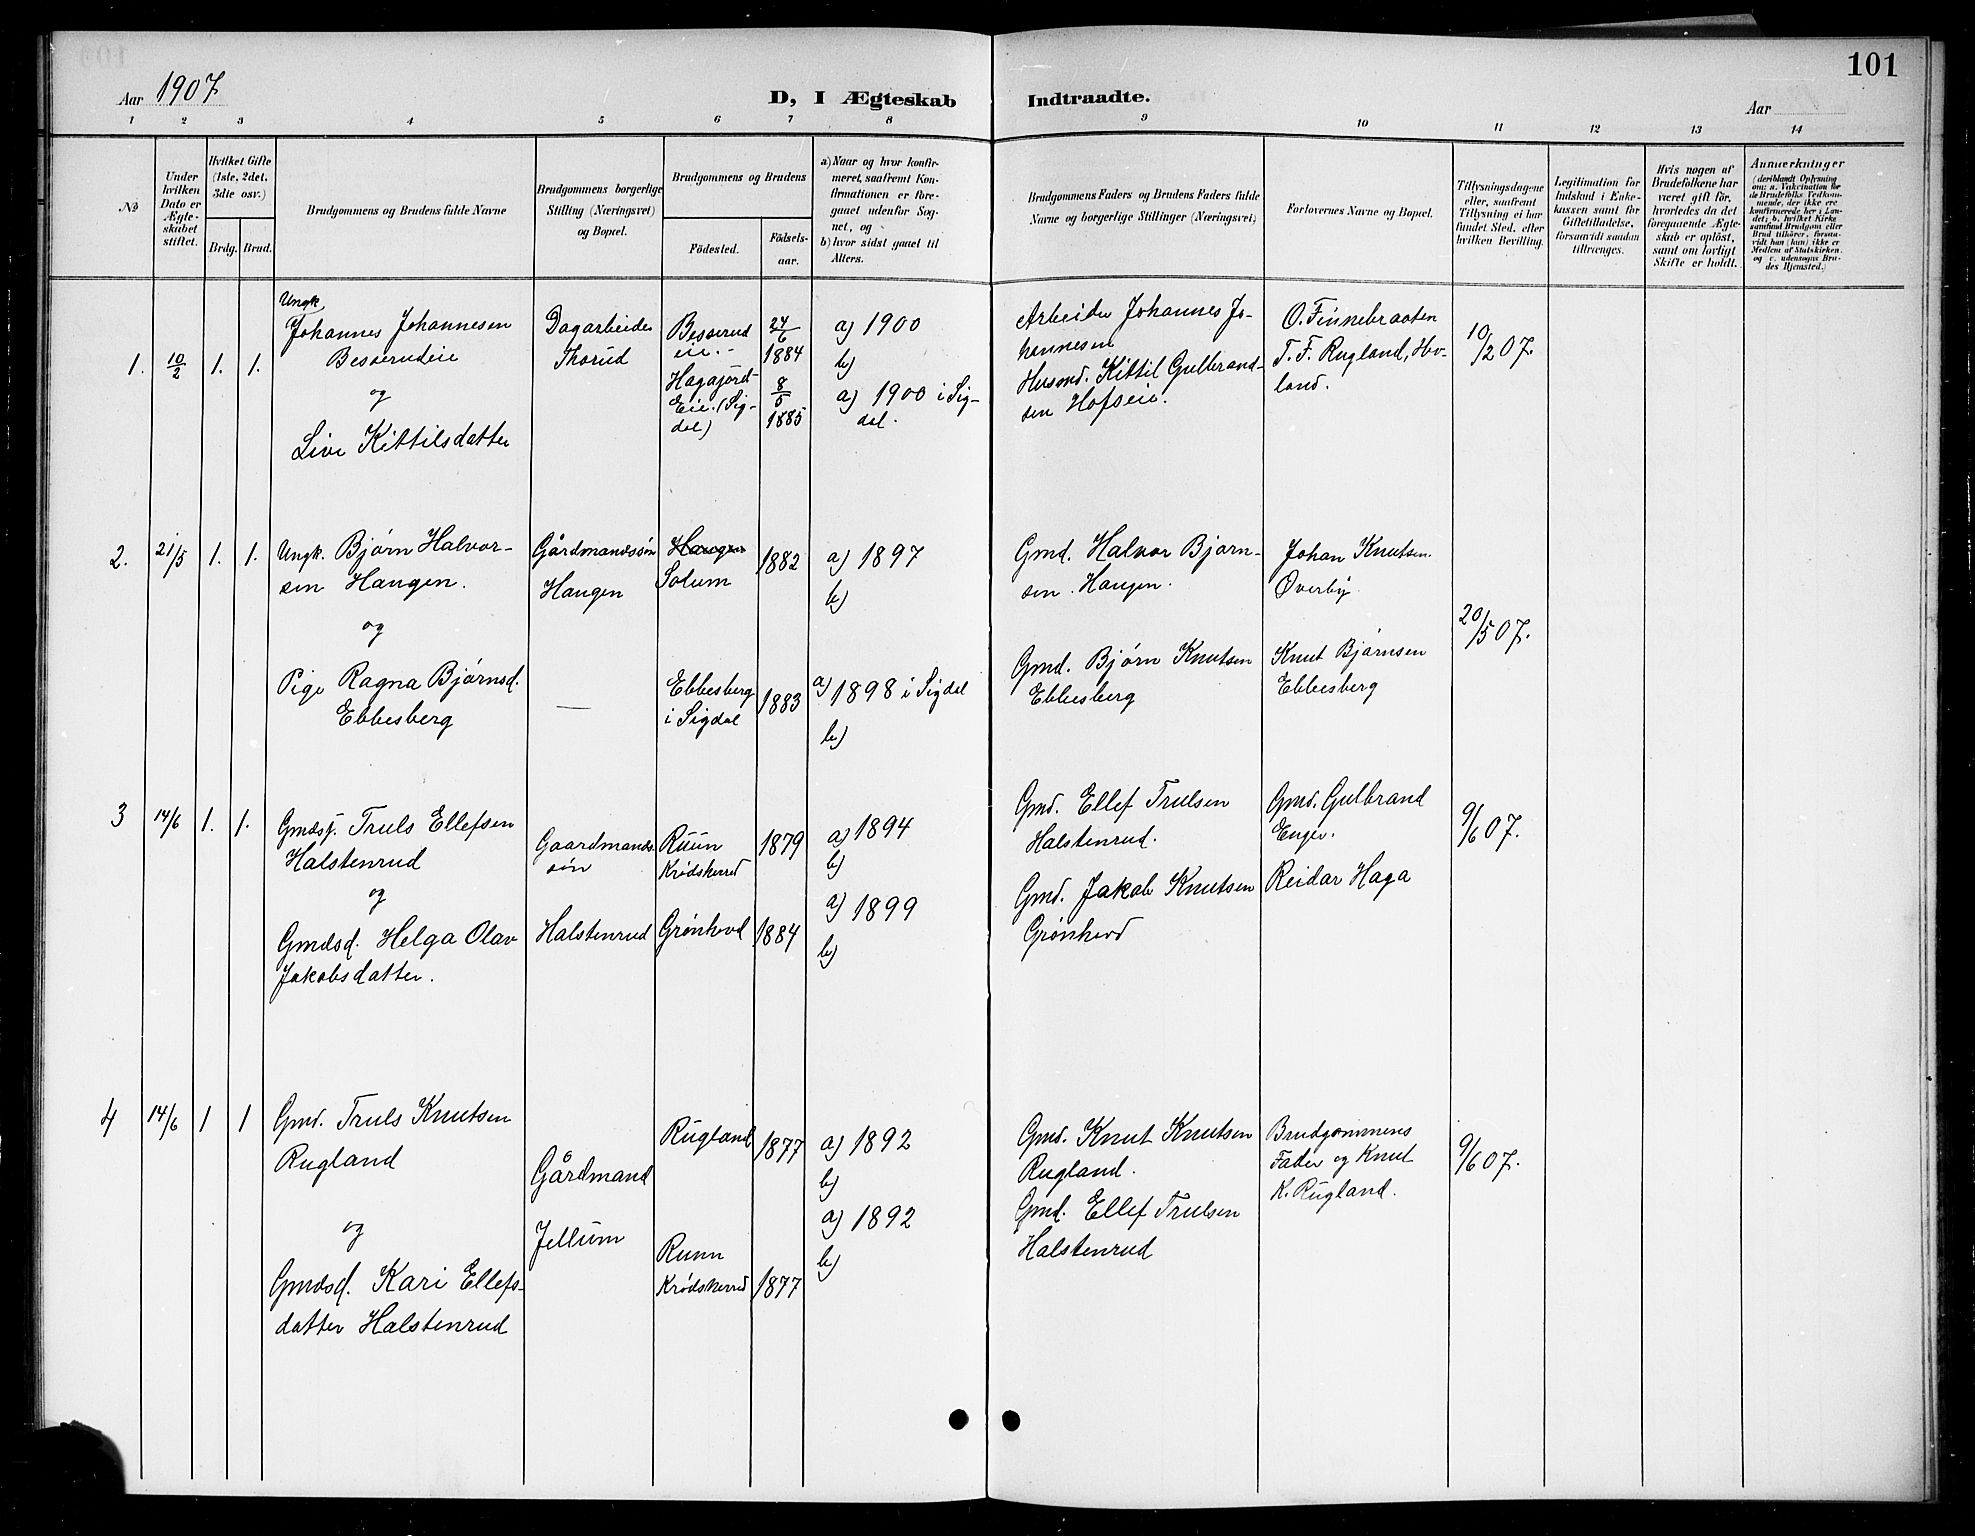 101
Aar 1907
D, I Ægteskab Indtraadte.
Aar
1 2 3 4 5 6 7 8 9 10 11 12 13 14
No
Under hvilken Dato er Ægteskabet stiftet.
Hvilket Gifte (1ste, 2det, 3die osv.)
Brdg. Brud.
Brudgommens og Brudens fulde Navne
Brudgommens borgerlige Stilling (Næringsvei) og Bopæl.
Brudgommens og Brudens
Fødested.
Fødsels-aar.
a) Naar og hvor konfir-
meret, saafremt Kon-
firmationen er fore-
gaaet udenfor Sog-
net, og
b) hvor sidst gaaet til
Alters.
Brudgommens Faders og Brudens Faders fulde
Navne og borgerlige Stillinger (Næringsvei)
Forlovernes Navne og Bopæl.
Tillysningsdagene
eller, saafremt
Tillysning ei har
fundet Sted, efter
hvilken Bevilling.
Legitimation for
Indskud i Enke-
kassen samt for
Giftetilladelse,
forsaavidt saadan
tiltrænges.
Hvis nogen af
Brudefolkene har
været gift før,
hvorledes da det
foregaaende Ægte-
skab er opløst,
samt om lovligt
Skifte er holdt.
Anmerkninger
(deriblandt Oplysning
om: a. Vakcination for
de Brudefolks Vedkom-
mende, der ikke ere
konfirmerede her i Lan-
det; b. hvilket Kirke
samfund Brudgom eller
Brud tilhører, forsaa-
vidt han (hun) ikke er
Medlem af Statskirken,
og c. udensogns Bru-
des Hjemsted.)
1. 10/2 1. 1.
Ungk
Johannes Johannesen
Besserudeie
og
Live Kittilsdatter
Dagarbeider
Thorud
Besserud
eie.-
Hagajord-
Eie. (Sig-
dal)
24/6
1884
8/5
1885
a) 1900
b)
a) 1900 i Sig-
dal.
Arbeider Johannes Jo-
hannesen
Husmd. Kittil Gulbrand-
sen Hofseie.
O. Finnebraaten
T. F. Rugland, Hov-
land.
10/2 07.
2. 21/5 1. 1.
Ungk. Bjørn Halvor-
sen Haugen.
og
Pige Ragna Bjørnsd.
Ebbesberg
Gårdmandssøn
Haugen
—
Haugen
Solum
Ebbesberg
i Sigdal
1882
1883
a) 1897
b)
a) 1898 i Sigdal
b)
Gmd. Halvor Bjørn-
sen. Haugen.
Gmd. Bjørn Knutsen
Ebbesberg
Johan Knutsen.
Øverby.
Knut Bjørnsen
Ebbesberg
20/5 07.
3 14/6 1. 1.
Gmdsf. Truls Ellefsen
Halstenrud
og
Gmdsd. Helga Olav
Jakobsdatter.
Gaardmands-
søn
Halstenrud
Ruun
Krødsherred
Grønhovd
1879
1884
a) 1894
b)
a) 1899
b)
Gmd. Ellef Trulsen
Halstenrud.
Gmd. Jakob Knutsen
Grønhovd
Gmd. Gulbrand
Enger.
Reidar Haga
9/6 07.
4 14/6 1 1
Gmd. Truls Knutsen
Rugland
og
Gmdsd. Kari Ellefs-
datter Halstenrud
Gårdmand
Jellum
Rugland
Ruun
Krødsherred
1877
1877
a) 1892
b)
a) 1892
b)
Gmd. Knut Knutsen
Rugland.
Gmd. Ellef Trulsen
Halstenrud
Brudgommens
Fader og Knut
K. Rugland.
9/6 07.